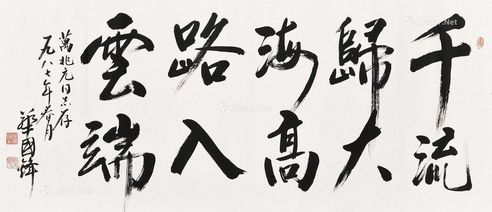 千流
歸大
海高
路入
雲端
萬兆元同志存
一九八七年春月
華國鋒